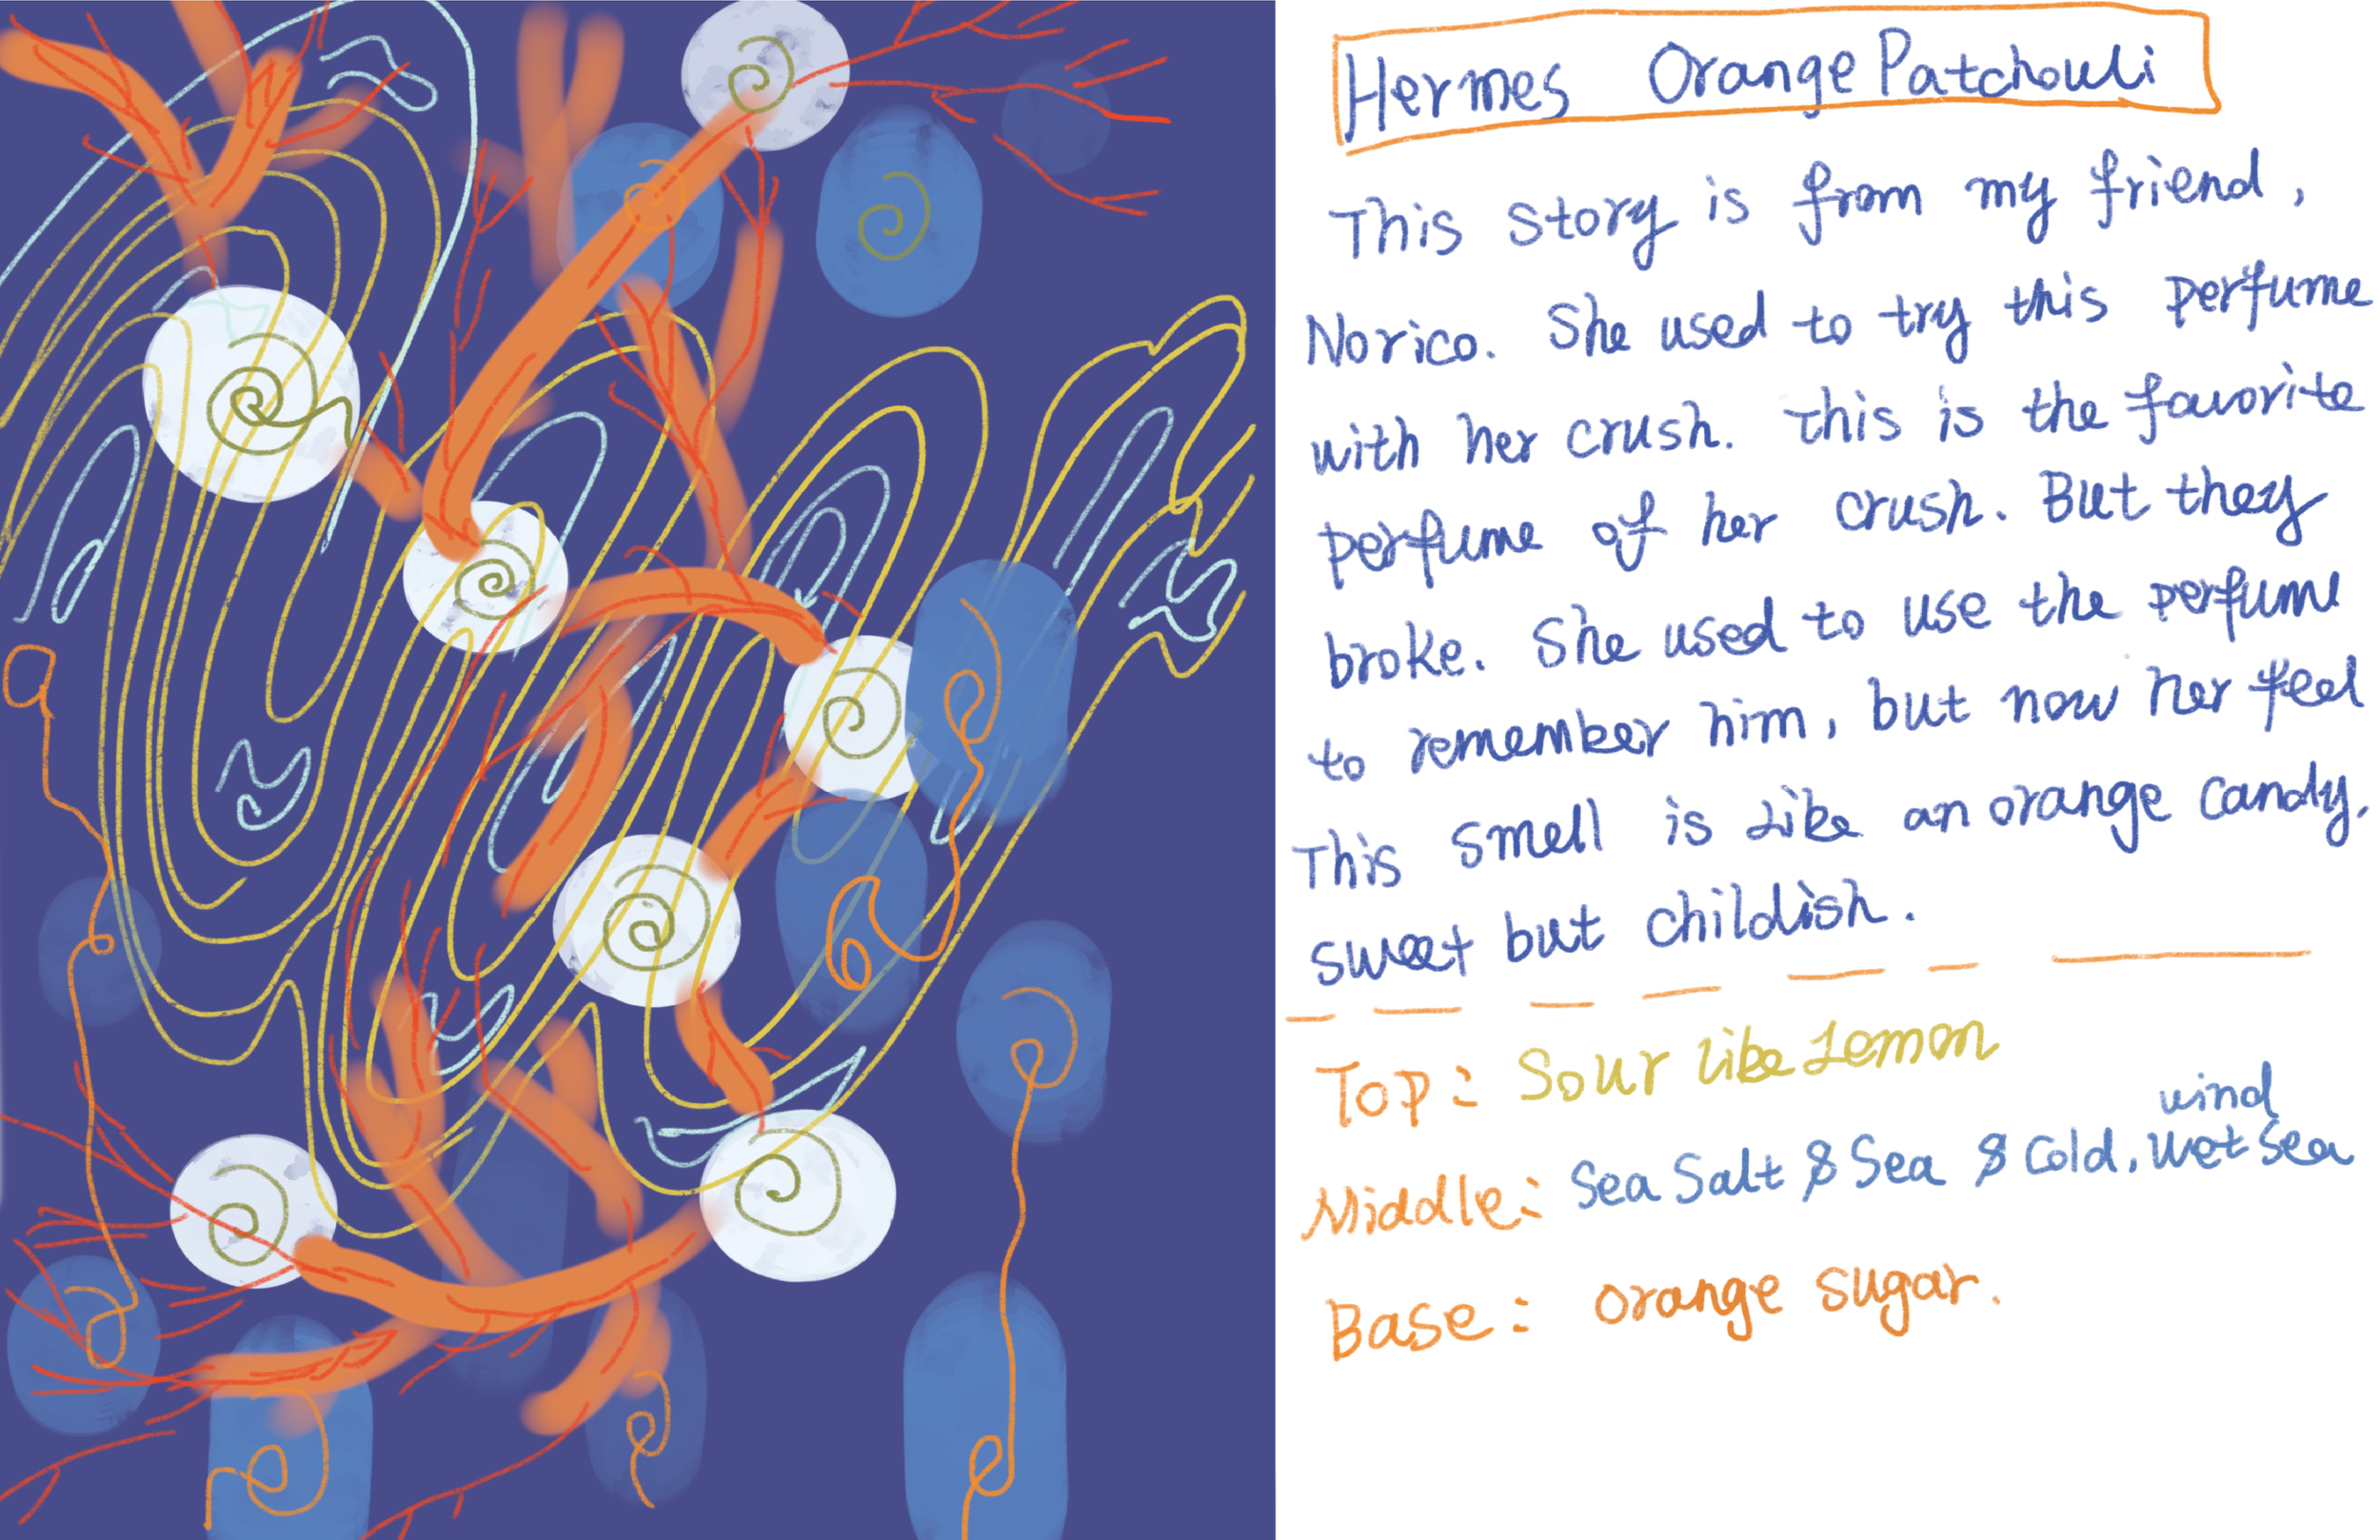 Hermes Orange Patchouli
This story is from my friend,
Norico. She used to try this perfume
with her crush. This is the favorite
perfume of her crush. But they
broke. She used to use the perfume
to remember him, but now her feel
This smell is like an orange candy,
sweet but childish.
Top: Sour like Lemon
wind
Middle: Sea Salt & Sea & Cold, wet sea
Base: orange sugar.